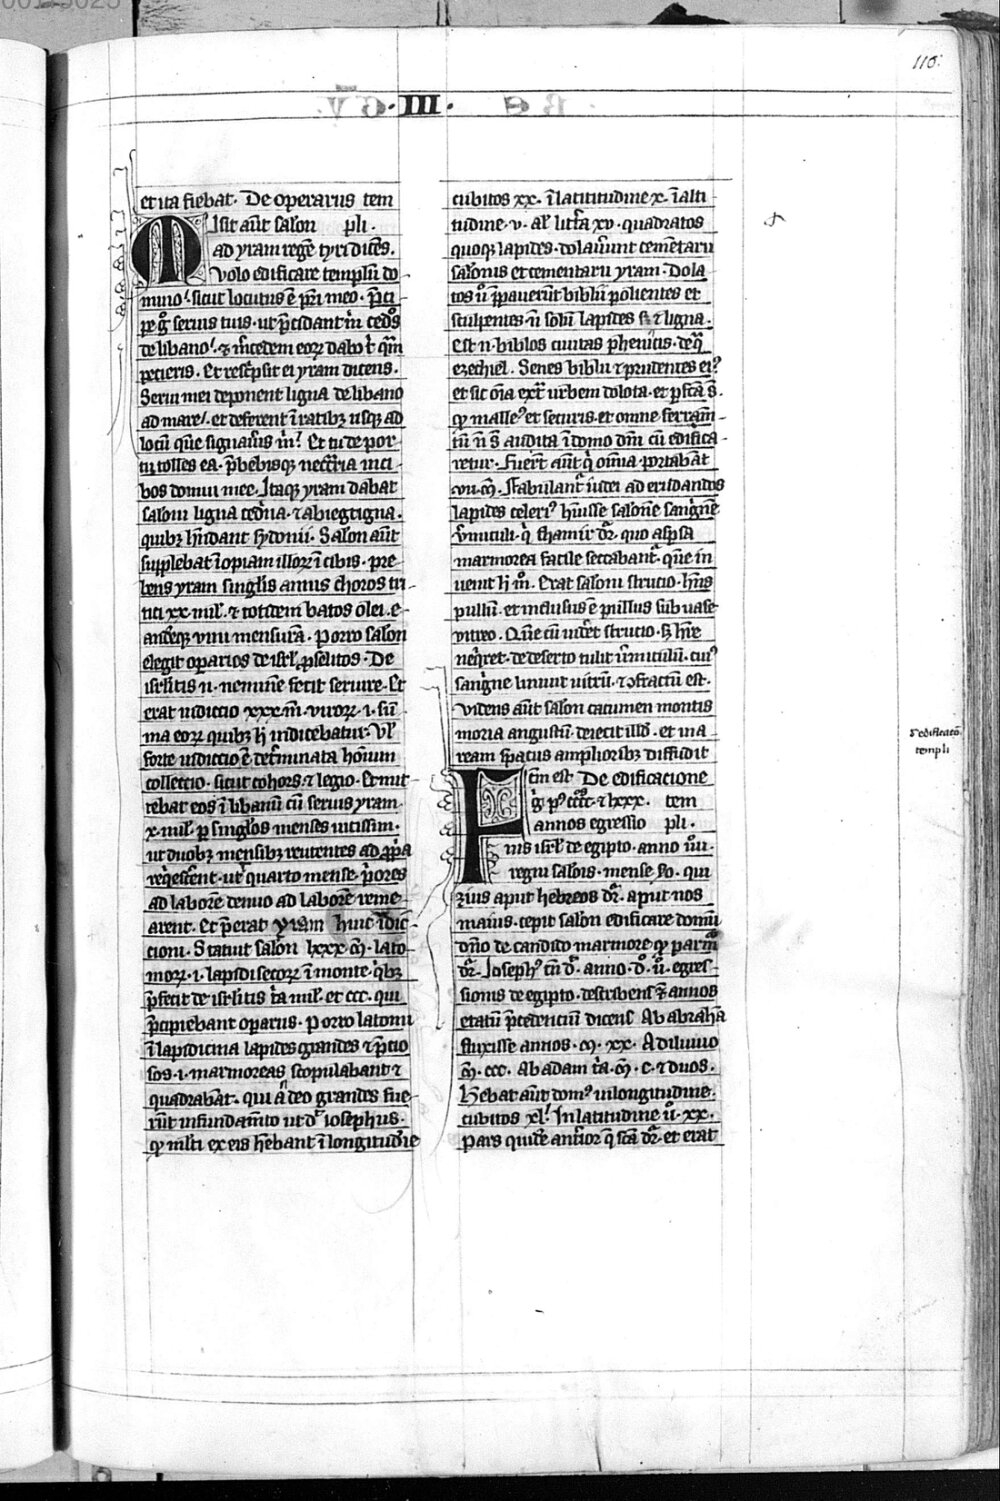 110.
III.
et ita fiebat. De operariis tem
Misit aut salon pli.
ad yram regē tyri dicēs.
volo edificare templū do
mino. sicut locutus ē pr̄i meo. p̄ci
pe g̊ seruis tuis. ut p̄cidant m̄ cedͦs
de libano. ⁊ m̄cedem eoꝝ dabo t̄ q̄m
petieris. Et resc̄psit ei yram dicens.
Serui mei deponent ligna de libano
ad mare. et deferent ī ratibꝫ usqꝫ ad
locū quē signaūis m̄. Et tu de por
tu tolles ea. p̄bebisqꝫ nec̄cria mi
bos domui mee. Itaqꝫ yram dabat
saloni ligna cedͥna. ⁊ abiegtigna.
quibꝫ hn̄dant sydonii. Salon aūt
supplebat īopiam illoꝝ ī cibis. pre
bens yram singlis annis choros tri
tici xx. mil. ⁊ totidem batos olei. e
andēqꝫ uini mensurā. Porro salon
elegit oparios de isrl ꝓselitos. De
isrlitis n. neminē fecit seruire. Et
erat indictio xxx. m̄. uiroꝝ .i. sū
ma eoꝝ quibꝫ h̄ indicebatur. Ul̄
forte indictio ē det̄minata hoīum
collectio. sicut cohors ⁊ legio. Et mit
tebat eos ī libanū cū seruis yram.
x. mil. ꝑ singlos menses uicissim.
ut duobꝫ mensibꝫ reutentes ad ꝓp̄a
reqͥescēnt. ut quarto mense p̄ores
ad laborē denuo ad laborē reme
arent. Et p̄erat yram huic īdic
tioni. Statuit salon lxxx. m̄. lato
moꝝ .i. lapidisecoꝝ ī monte. qͥbꝫ
p̄fecit de isrlitis tͥa mil. et ccc. qui
p̄cipiebant opariis. Porro latomi
ī lapidicina lapides grandes ⁊ p̄tio
sos .i. marmoreas scopulabant ⁊
quadrabāt. qui adeo grandes fue
rūt in fundamēto ut dͭ iosephus.
qͥ mlti ex eis hēbant ī longitudīe
cubitos xx. ī latitudine x. ī alti
tudine .v. al' litͣa xv. quadratos
quoqꝫ lapides. dolauunt cemētarii
salonis et cementarii yram. Dola
tos ū p̄pauerūt biblii polientes et
sculpentes. n̄ solū lapides s; ⁊ ligna.
Est n. biblos ciuitas phenicis. de q̄
ezechiel. Senes biblii ⁊ prudentes ei⁹
et sic oīa ext̄ urbem dolota. et pfcā s̄.
qͥ malle⁹ et securis. et omne ferram̄
tū n̄ s̄ audita ī domo dn̄i cū edifica
retur. Fuert̄ aūt qͥ onera portabāt
.vii. m̄. Fabulant iudei ad erudandos
lapides celeri⁹ huisse salonē sangͥnē
ūmiculi. qͥ thamir dr̄. quo aspsa
marmorea facile seccabant. quē in
uenit h̄ mͦ. Erat saloni strucio. hn̄s
pullū. et inclusus ē pullus sub uase
uitreo. Quē cū uidēt strucio. s; hr̄e
neqͥret. de deserto tulit ūmiculū. cui⁹
sangͥne liniuit uitrū. ⁊ ꝯfractū est.
Videns aūt salon cacumen montis
moria angustū. deiecit illd. et in a
ream spacius amplioribꝫ diffudit
Factm est De edificacione
g̊ p⁹ cccc. ⁊ lxxx. tem
annos egressio pli.
nis isrl de egipto. anno iiii.
regni salōis. mense s̄o. qui
zius aput hebreos dr̄. aput nos
maius. cepit salon edificare domū
dn̄o de candido marmore qͥ parm̄
dr̄. Joseph⁹ tn̄ dͭ. anno. dͦ. ū. egres
sionis de egipto. describens ⁊ annos
etatū p̄cedenciū dicens. Ab abrahā
fluxisse annos. m̄. xx. A diluuio
m̄. ccc. Ab adam tͥa. m̄. c. ⁊ duos.
Hēbat aūt dom⁹ in longitudine
cubitos xl. In latitudine ū. xx.
Pars quidē antͥior q̄ scā dr̄. et erat
d' edificacōe
templi